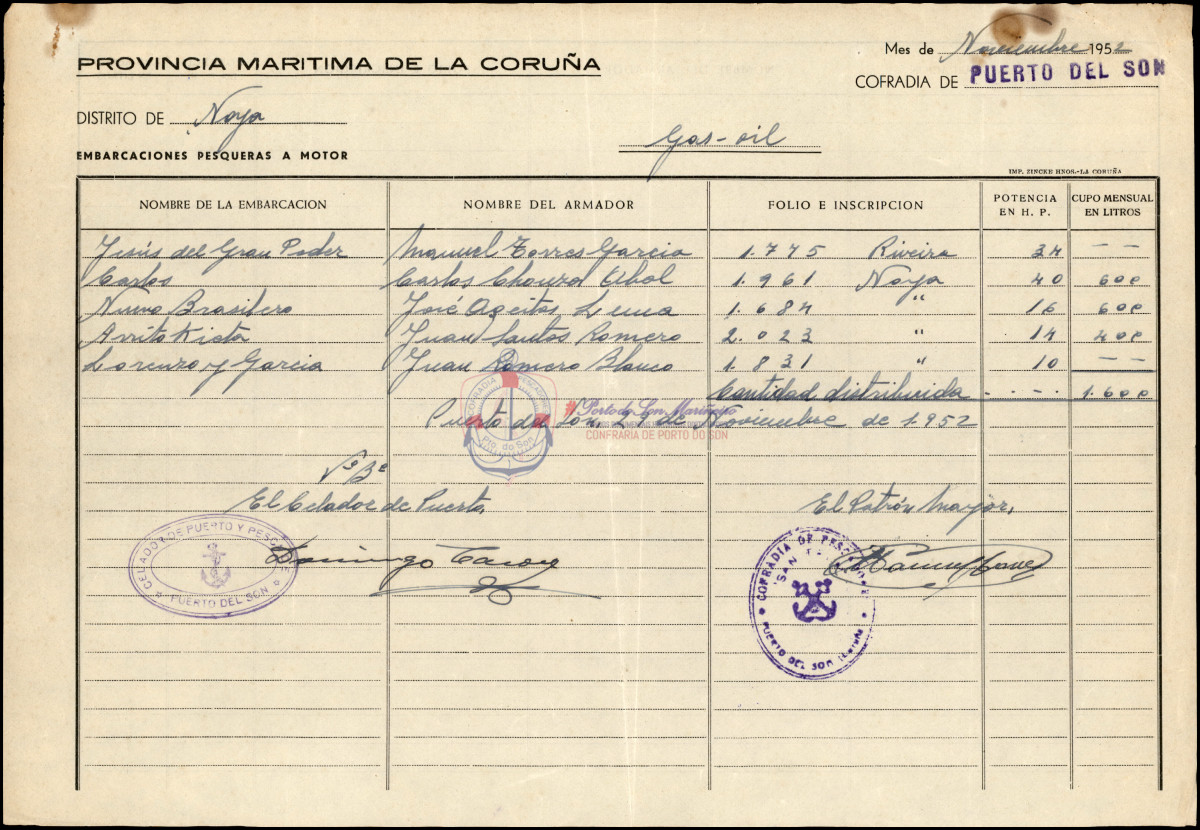 Mes de Noviembre 1952
PROVINCIA MARITIMA DE LA CORUÑA
COFRADIA DE PUERTO DEL SON
DISTRITO DE Noya
Gas-oil
EMBARCACIONES PESQUERAS A MOTOR
IMP. ZINCKE HNOS.-LA CORUÑA
NOMBRE DE LA EMBARCACION NOMBRE DEL ARMADOR FOLIO E INSCRIPCION POTENCIA EN H. P. CUPO MENSUAL EN LITROS
Jesús del Gran Poder Manuel Torres Garcia 1.775 Riveira 34 - -
Carlos Carlos Chouza 1.961 Noya 40 600
Nuevo Brasilero José Ageitos Lema 1.684 " 16 600
Juan Santos Romero 2.023 " 14 400
Lorenzo y Garcia Juan Romero Blanco 1.831 " 10 - -
Cantidad distribuida - - - - 1.600
Puerto del Son, 29 de Noviembre de 1.952
COFRADIA
Pto. do Son
#Porto do Son Mariñeiro
CONFRARIA DE PORTO DO SON
Vº Bº
El Celador de Puerto, El Patrón Mayor,
CELADOR DE PUERTO Y PESCA DE
PUERTO DEL SON
Domingo
COFRADIA DE PESCADORES
SAN
PUERTO DEL SON (Coruña)